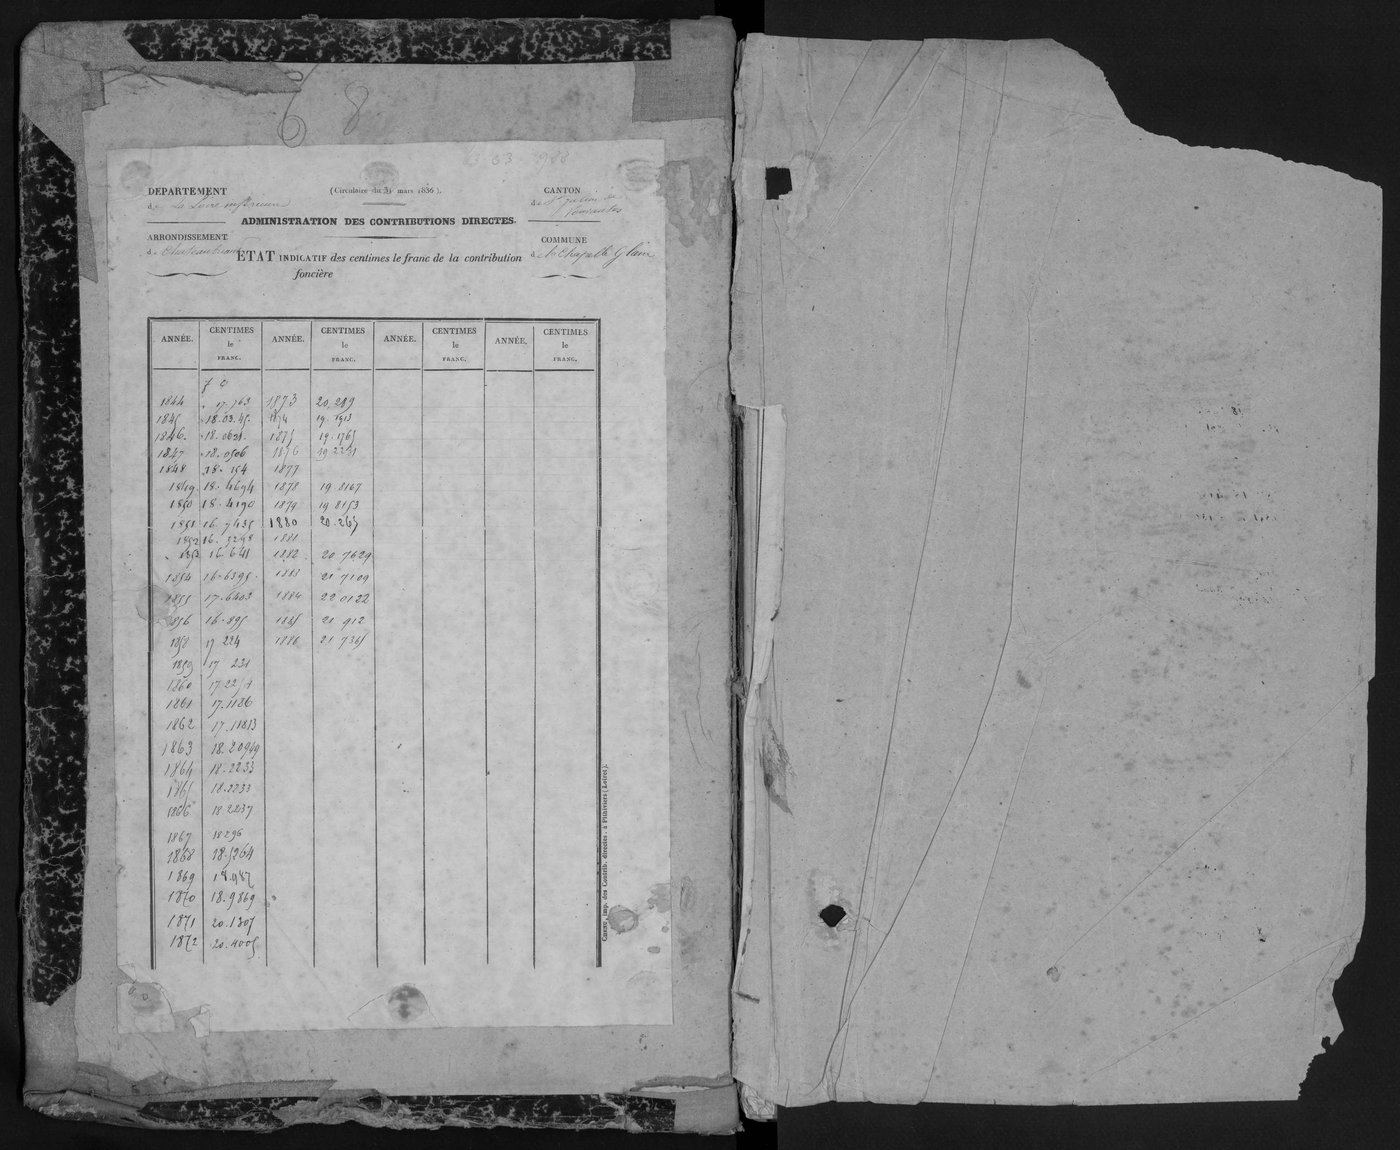 6 8
DEPARTEMENT
de La Loire inférieure
(Circulaire du 31 mars 1836).
CANTON
de St Julien de
Vouvantes
ADMINISTRATION DES CONTRIBUTIONS DIRECTES.
ARRONDISSEMENT
de Chateaubriant
COMMUNE
de la Chapelle Glain
ETAT INDICATIF des centimes le franc de la contribution
foncière
ANNÉE. CENTIMES le FRANC. ANNÉE. CENTIMES le FRANC. ANNÉE. CENTIMES le FRANC. ANNÉE. CENTIMES le FRANC.
f c
1844 17.763 1873 20,289
1845 18.03.45. 1874 19.1913
1846. 18.0621. 1875 19.1765
1847 18.0506 1876 19 2231
1848 18.154 1877
1849 18.4694 1878 19 8167
1850 18.4190 1879 19 8153
1851 16.7435 1880 20.265
1852 16.3298 1881
1853 16.641 1882 20 7629
1854 16.6395. 1883 21 7109
1855 17.6403 1884 22 0122
1856 16.895 1885 21 912
1858 17 224 1886 21 7365
1859 17 231
1860 17.2254
1861 17.1186
1862 17.11813
1863 18.20949
1864 18.2233
1865 18.2233
1866 18 2237
1867 18 296
1868 18.5264
1869 18.987
1870 18.9869
1871 20.1307
1872 20.4005
Caevre, imp. des Contrib. directes, à Pithiviers (Loiret).